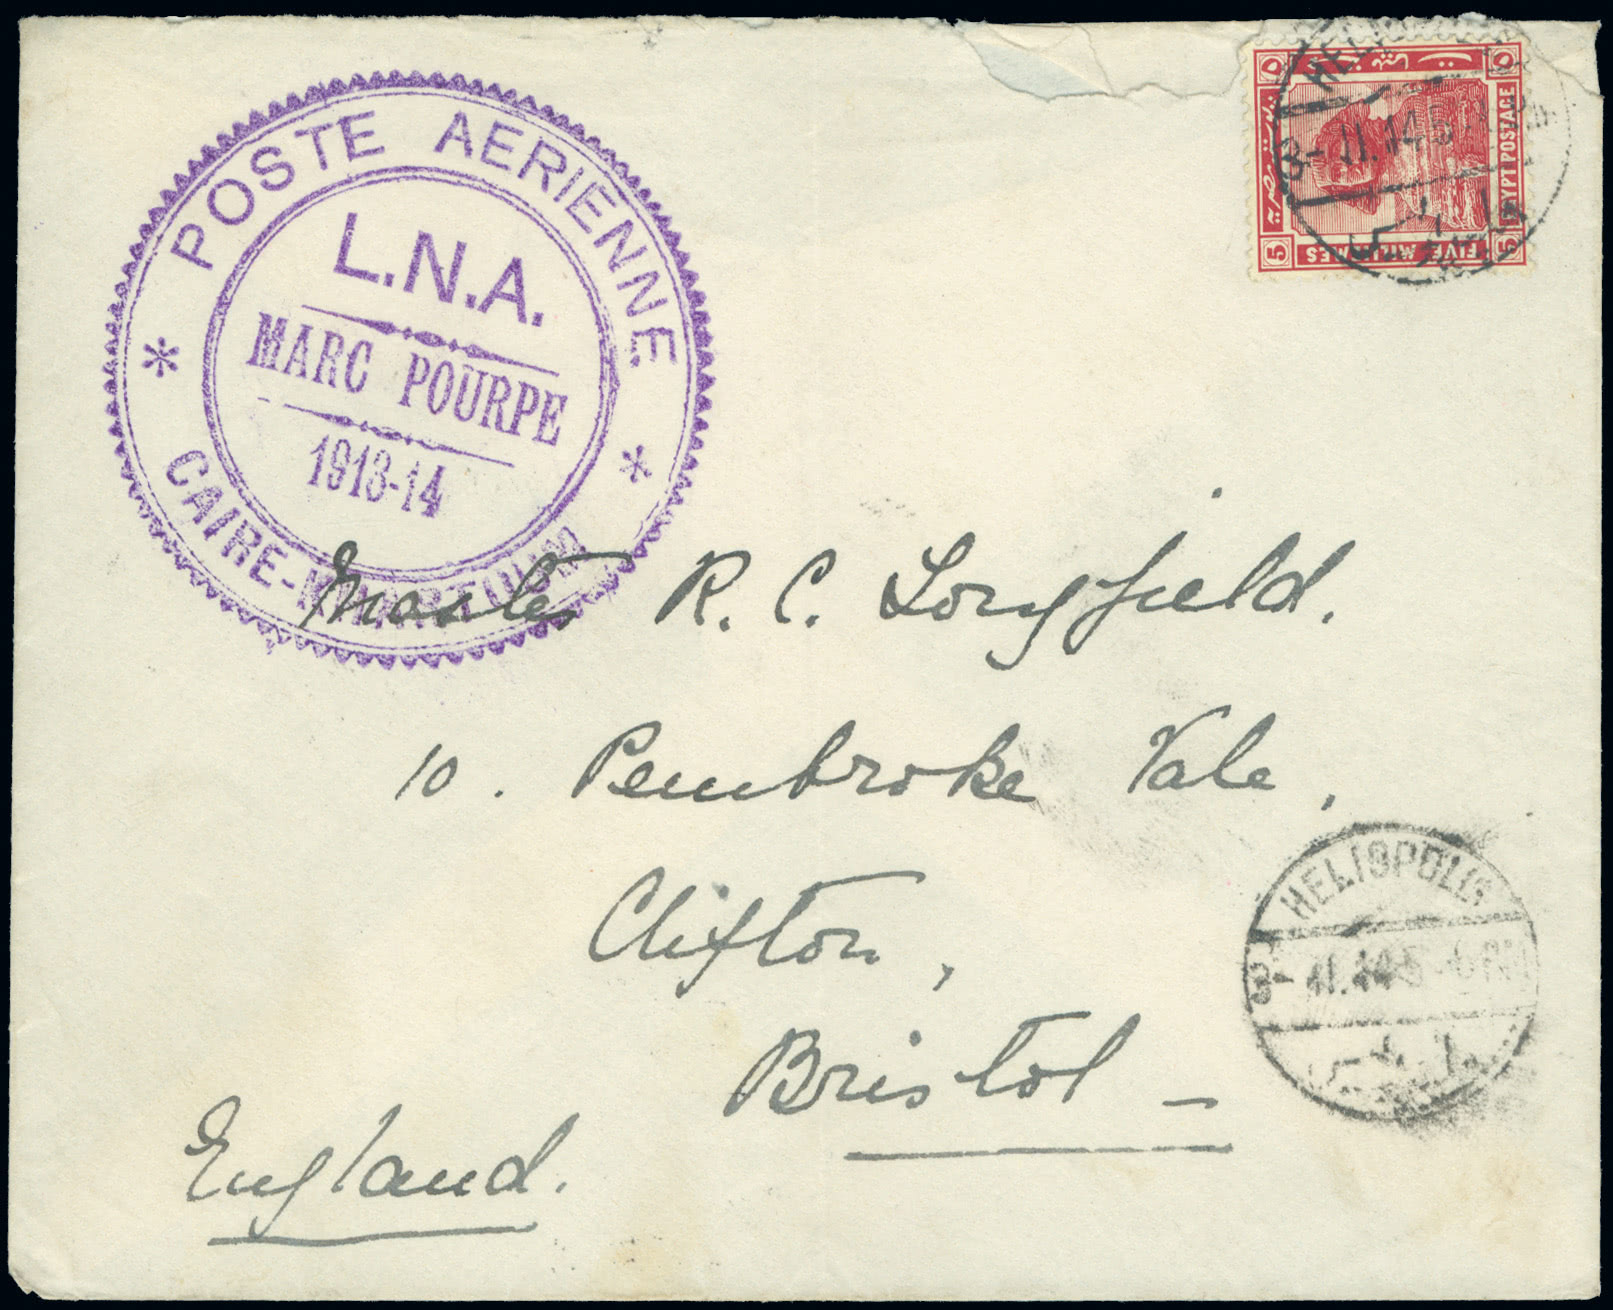 POSTE AERIENNE
L.N.A.
MARC POURPE
1913-14
* CAIRE-KHARTOUM *
٥ ٥
EGYPT POSTAGE
5 FIVE MILLIEMES 5
3-II.14 5
Master R. C. Longfield.
10. Pembroke Vale,
Clifton,
Bristol –
England.
HELIOPOLIS
3-II.14 5